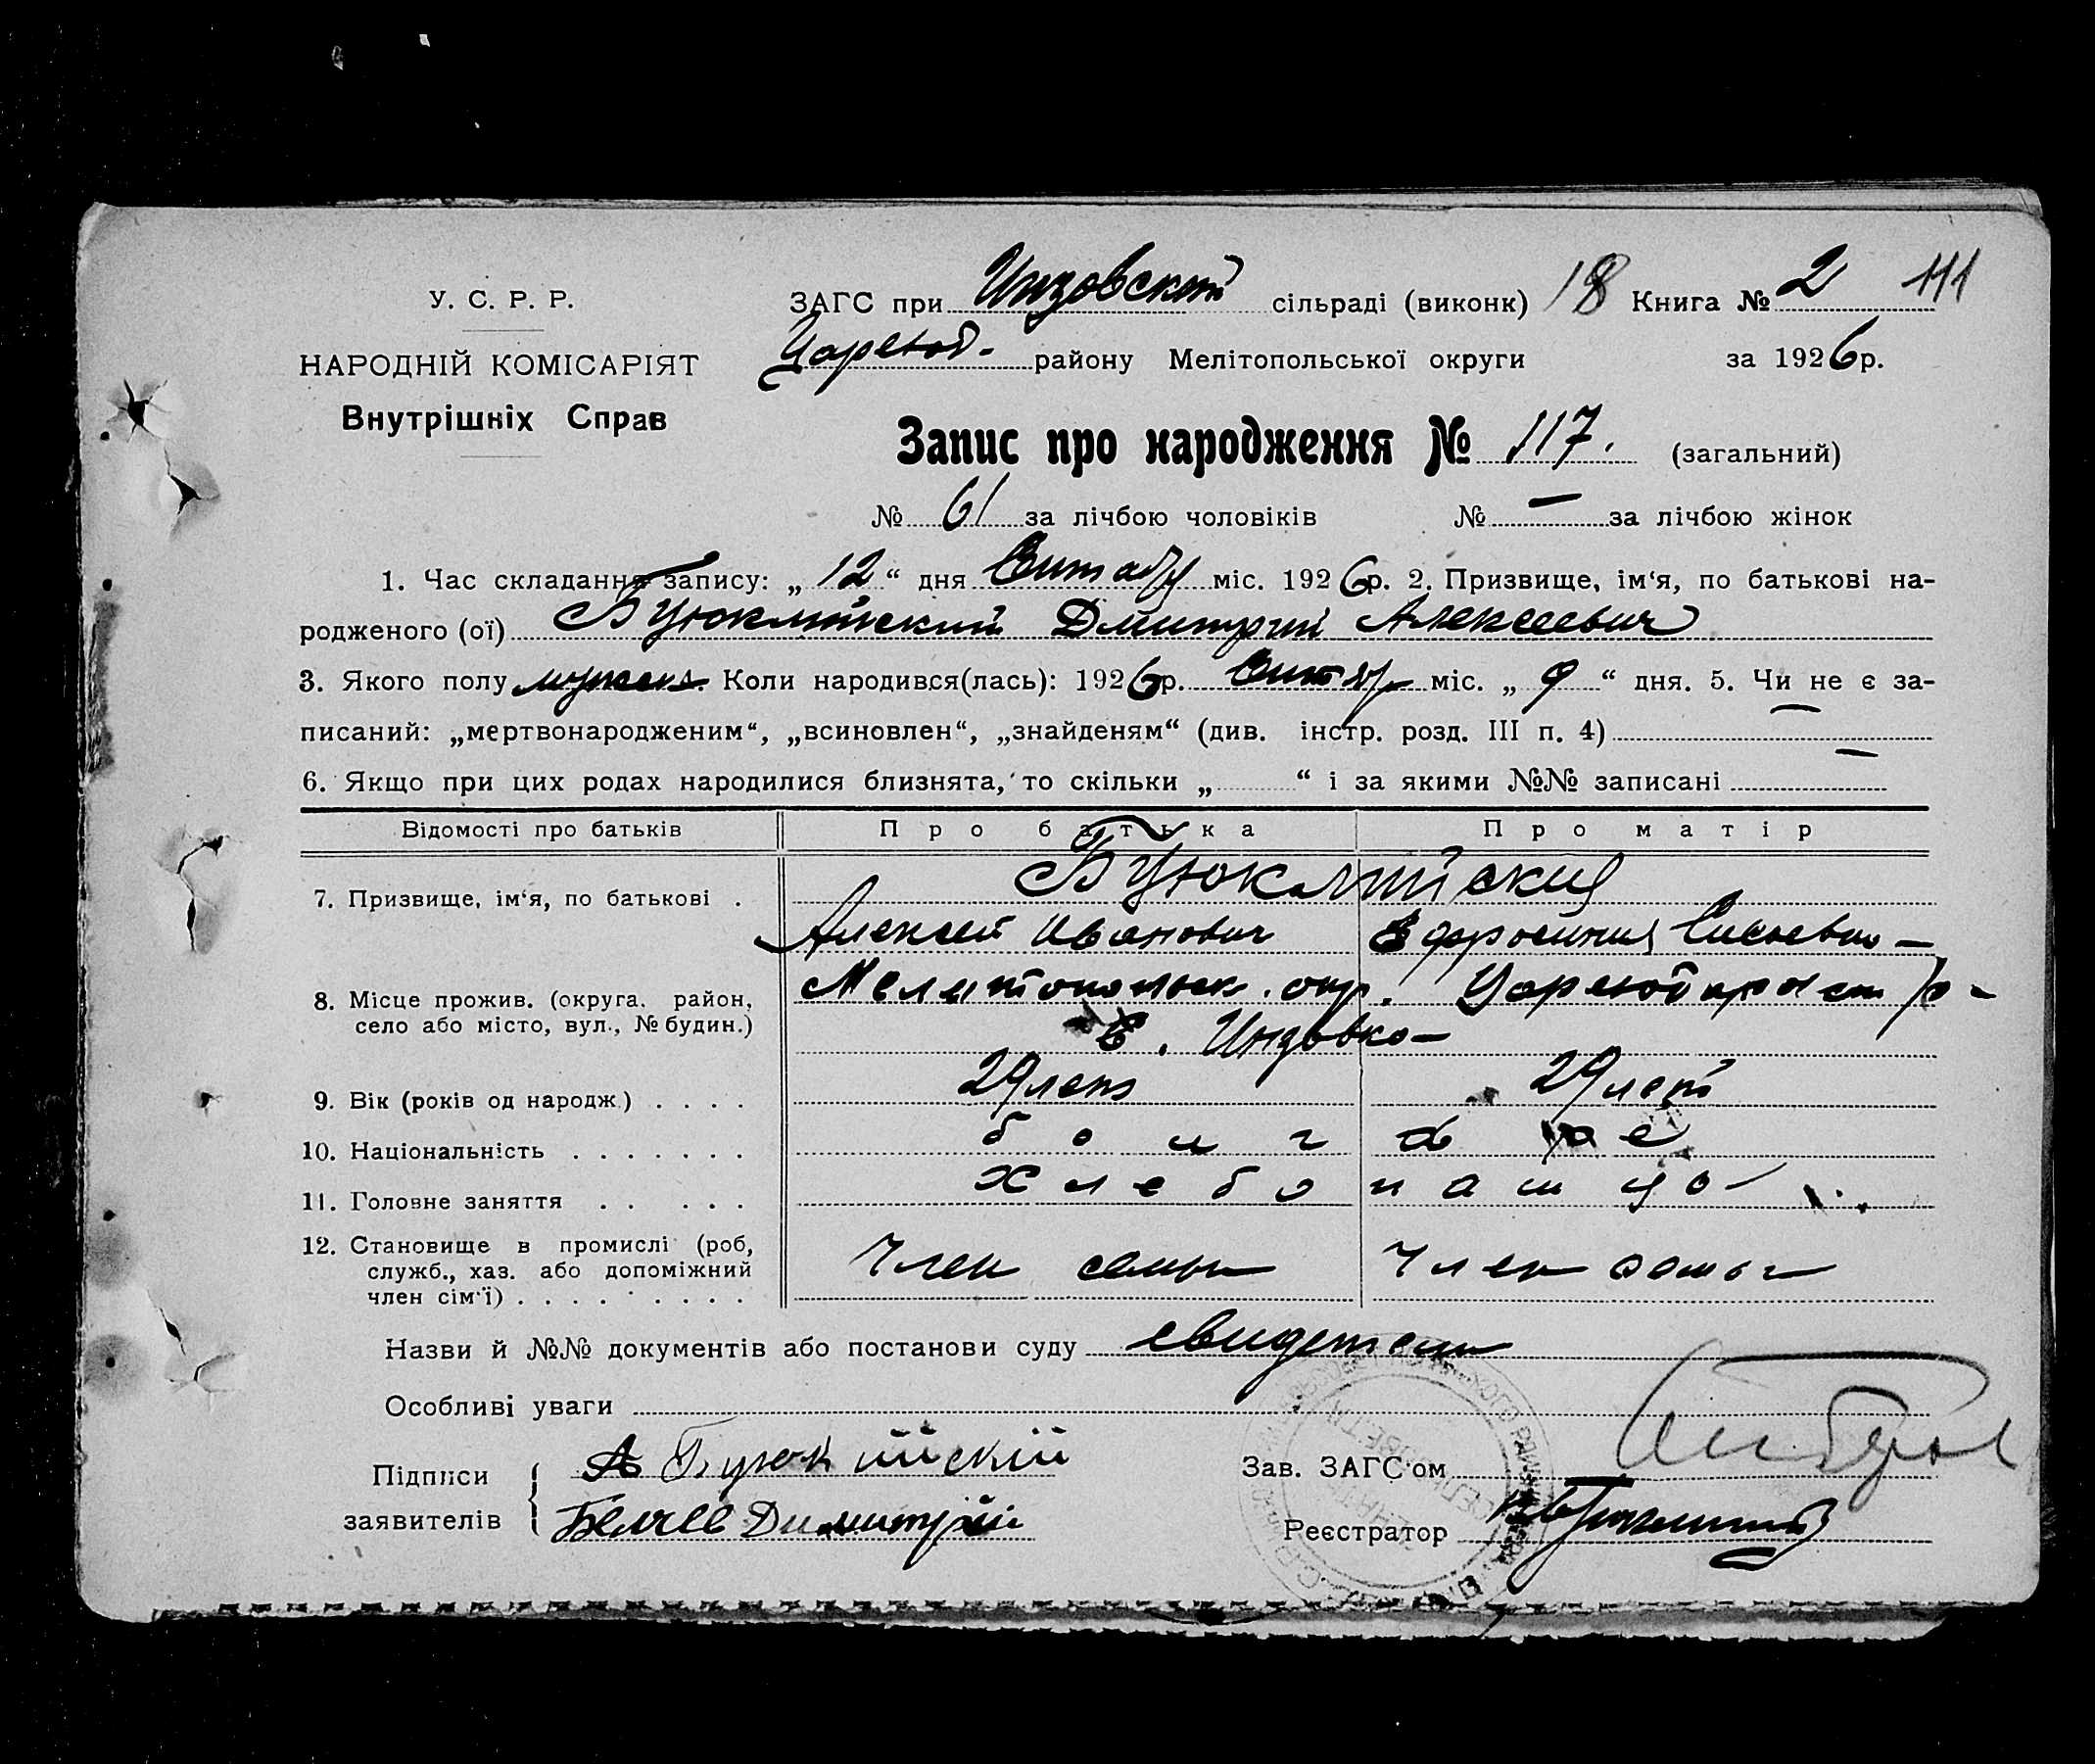 111
У. С. Р. Р.
ЗАГС при Инзовской сільраді (виконк) 18 Книга № 2
НАРОДНІЙ КОМІСАРІЯТ
Внутрішніх Справ
Царевод. району Мелітопольської округи за 1926 р.
Запис про народження № 117. (загальний)
№ 61 за лічбою чоловіків № — за лічбою жінок
1. Час складання запису: „ 12 “ дня міс. 1926 р. 2. Призвище, ім‘я, по батькові на-
родженого (ої) Буюклийский Дмитрий Алексеевич
3. Якого полу мужск. Коли народився(лась): 1926 р. міс. „ 9 “ дня. 5. Чи не є за-
писаний: „мертвонародженим“, „всиновлен“, „знайденям“ (див. інстр. розд. III п. 4) —
6. Якщо при цих родах народилися близнята, то скільки „ “ і за якими №№ записані —
Відомості про батьків Про батька Про матір
7. Призвище, ім‘я, по батькові . Буюклийския
Алексей Иванович
8. Місце прожив. (округа, район, Мелитопольск. окр.
село або місто, вул., № будин.) С. Инзовка
9. Вік (років од народж.) . . . . 29 лет 29 лет
10. Національність . . . . . . . болгаре
11. Головне заняття . . . . . хлебопашцы
12. Становище в промислі (роб, Член семьи Член семьи
служб., хаз. або допоміжний
член сім‘ї) . . . . . . . . .
Назви й №№ документів або постанови суду
Особливі уваги
Підписи А Буюклийский Зав. ЗАГС‘ом
заявителів Белчев Димитрій Реєстратор